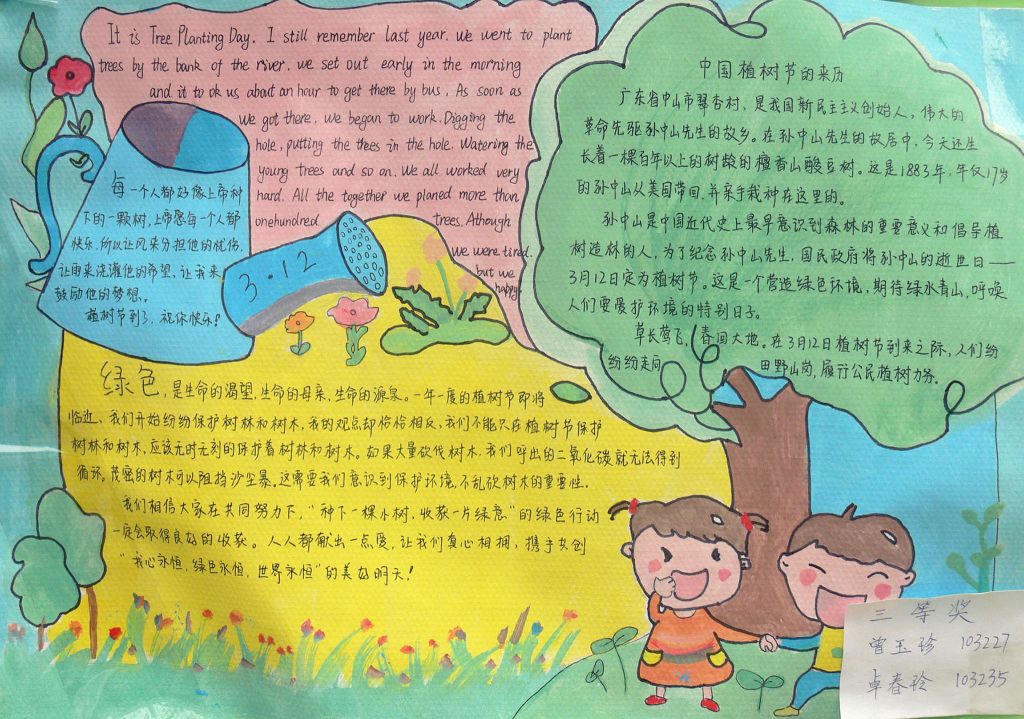 It is Tree Planting Day. I still remember last year. we went to plant
trees by the bank of the river. we set out early in the morning
and it to ok us about an hour to get there by bus, As soon as
we got there, we began to work. Digging the
hole, putting the trees in the hole. Watering the
young trees and so on. We all worked very
hard. All the together we planed more than
onehundred trees. Athough
we were tired.
but we
happy.
中国植树节的来历
广东省中山市翠杏村，是我国新民主主义创始人，伟大的
革命先驱孙中山先生的故乡。在孙中山先生的故居中，今天还生
长着一棵百年以上的树龄的檀香山酸豆树。这是1883年，年仅17岁
的孙中山从美国带回，并亲手栽种在这里的。
孙中山是中国近代史上最早意识到森林的重要意义和倡导植
树造林的人，为了纪念孙中山先生，国民政府将孙中山的逝世日——
3月12日定为植树节。这是一个营造绿色环境，期待绿水青山，呼唤
人们要爱护环境的特别日子。
草长莺飞，春回大地。在3月12日植树节到来之际，人们纷
纷纷走向田野山岗，履行公民植树力务。
每一个人都好像上帝种
下的一颗树，上帝愿每一个人都
快乐，所以让风来分担他的忧伤，
让雨来浇灌他的希望，让我来
鼓励他的梦想。
植树节到了，祝你快乐！
3·12
绿色，是生命的渴望，生命的母亲，生命的源泉。一年一度的植树节即将
临近，我们开始纷纷保护树林和树木，我的观点却恰恰相反，我们不能只在植树节保护
树林和树木，应该无时无刻的保护着树林和树木。如果大量砍伐树木，我们呼出的二氧化碳就无法得到
循环。茂密的树木可以阻挡沙尘暴。这需要我们意识到保护环境，不乱砍树木的重要性．
我们相信大家在共同努力下，“种下一棵小树，收获一片绿意”的绿色行动
一定会取得良好的收获。人人都献出一点爱，让我们真心相拥，携手共创
“我心永恒，绿色永恒，世界永恒”的美好明天！
三等奖
曾玉珍 103227
卓春玲 103235